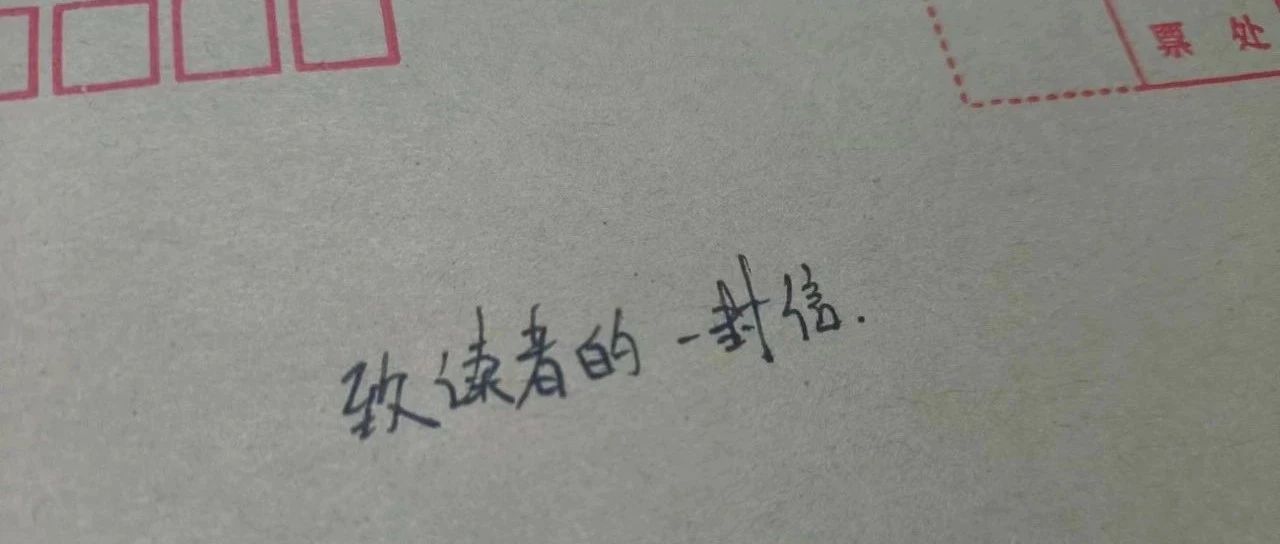 票 处
致读者的一封信.